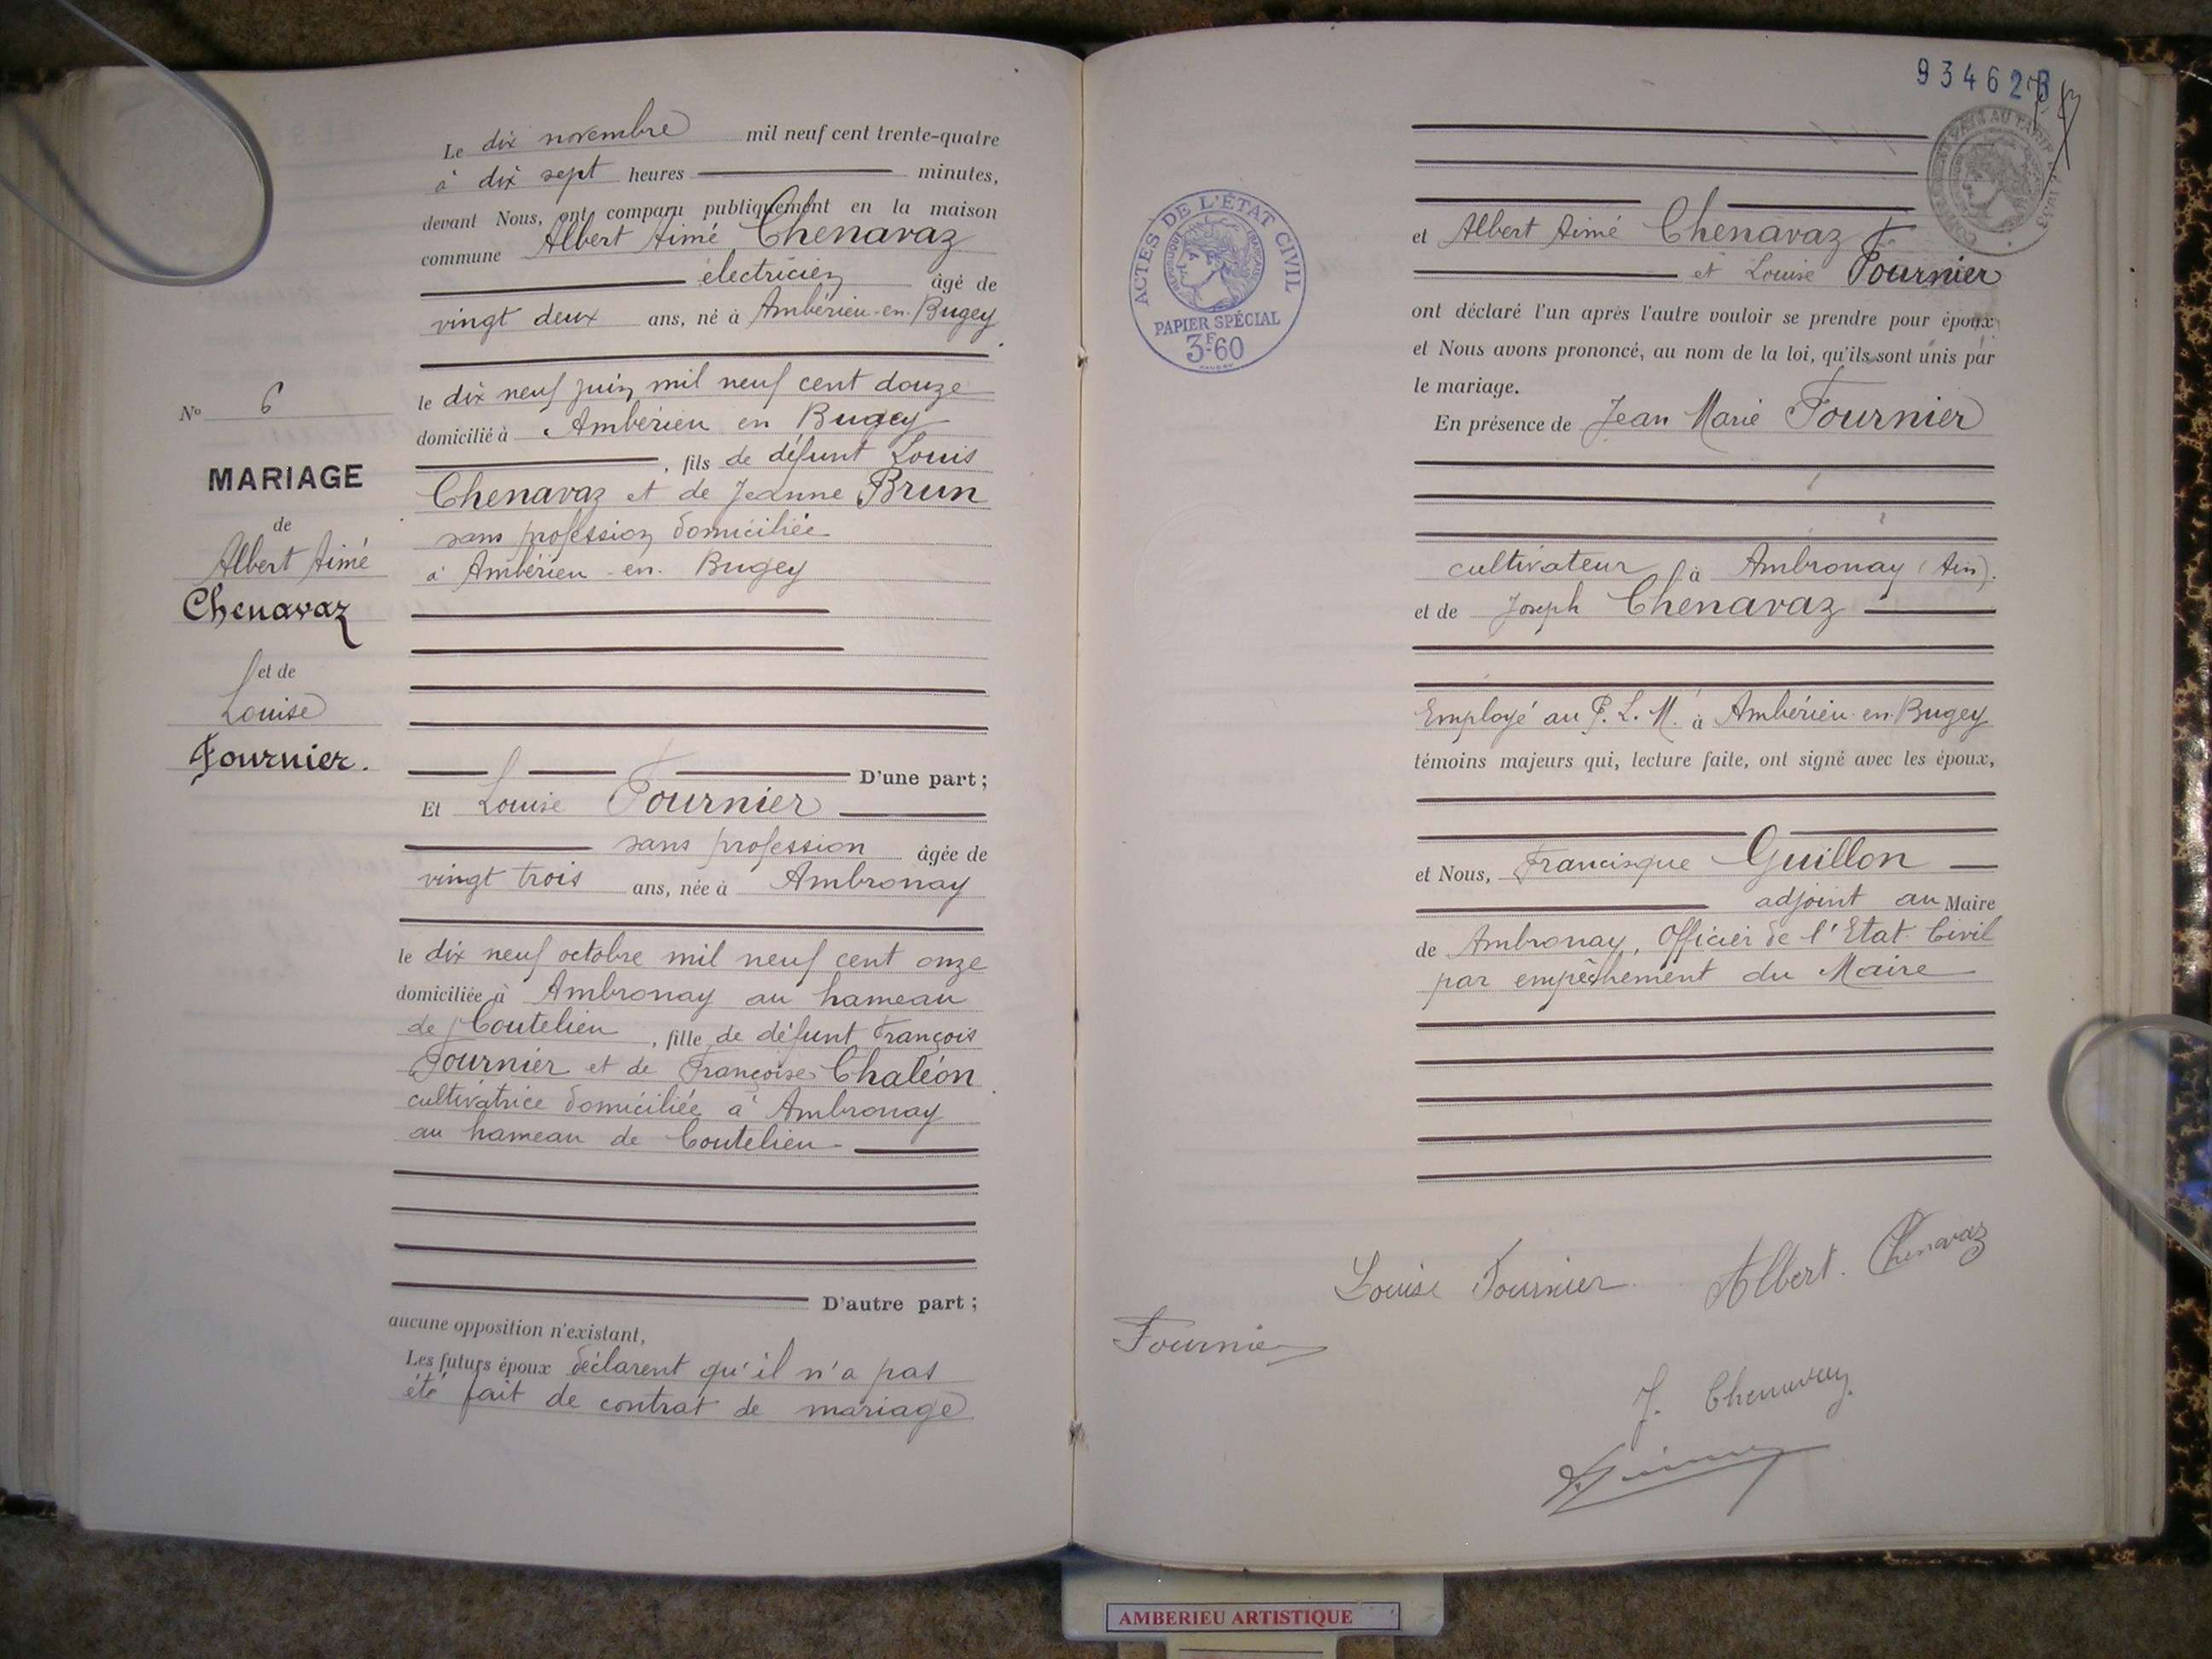 Le dix novembre mil neuf cent trente-quatre
à dix sept heures minutes,
devant Nous, ont comparu publiquement en la maison
commune Albert Aimé Chenavaz
électricien âgé de
vingt deux ans, né à Ambérieu-en-Bugey
le dix neuf juin mil neuf cent douze
domicilié à Ambérieu en Bugey
, fils de défunt Louis
Chenavaz et de Jeanne Brun
sans profession domiciliée
à Ambérieu-en-Bugey
D'une part ;
Et Louise Fournier
sans profession âgée de
vingt trois ans, née à Ambronay
le dix neuf octobre mil neuf cent onze
domiciliée à Ambronay au hameau
de Coutelieu, fille de défunt François
Fournier et de Françoise Chaléon
cultivatrice domiciliée à Ambronay
au hameau de Coutelieu
D'autre part ;
aucune opposition n'existant,
Les futurs époux déclarent qu'il n'a pas
été fait de contrat de mariage
No 6
MARIAGE
de
Albert Aimé
Chenavaz
et de
Louise
Fournier.
93462 B
ACTES DE L'ÉTAT CIVIL
RÉPUBLIQUE FRANÇAISE
PAPIER SPÉCIAL
3F60
et Albert Aimé Chenavaz
et Louise Fournier
ont déclaré l'un après l'autre vouloir se prendre pour époux
et Nous avons prononcé, au nom de la loi, qu'ils sont unis par
le mariage.
En présence de Jean Marie Fournier
cultivateur à Ambronay (Ain).
et de Joseph Chenavaz
Employé au P. L. M. à Ambérieu-en-Bugey
témoins majeurs qui, lecture faite, ont signé avec les époux,
et Nous, Francisque Guillon
adjoint au Maire
de Ambronay, Officier de l'Etat Civil
par empêchement du Maire
Louise Fournier. Albert. Chenavaz
Fournier
J. Chenavaz
AMBERIEU ARTISTIQUE